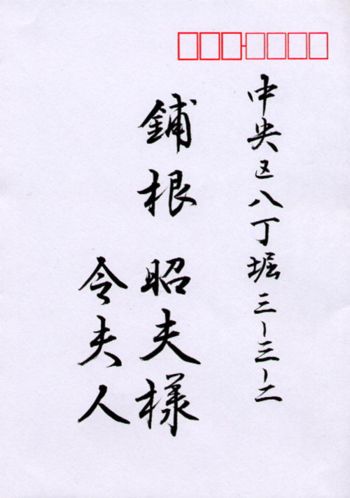 中央区八丁堀三ー三ー二
鋪根 昭夫様
令夫人